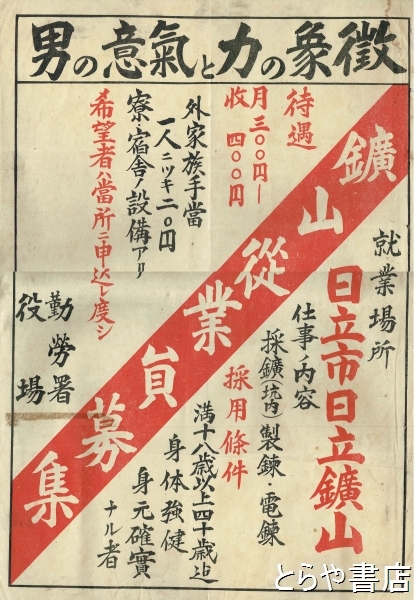 男の意氣と力の象徴
鑛山從業員募集
就業場所
日立市日立鑛山
仕事ノ内容
採鑛(坑内)製鍊・電鍊
採用條件
満十八歳以上四十歳迠
身体強健
身元確實
ナル者
待遇
月収三〇〇円ー四〇〇円
外家族手當
一人ニツキ二〇円
寮・宿舎ノ設備アリ
希望者ハ當所ニ申込レ度シ
勤勞署
役場
とらや書店